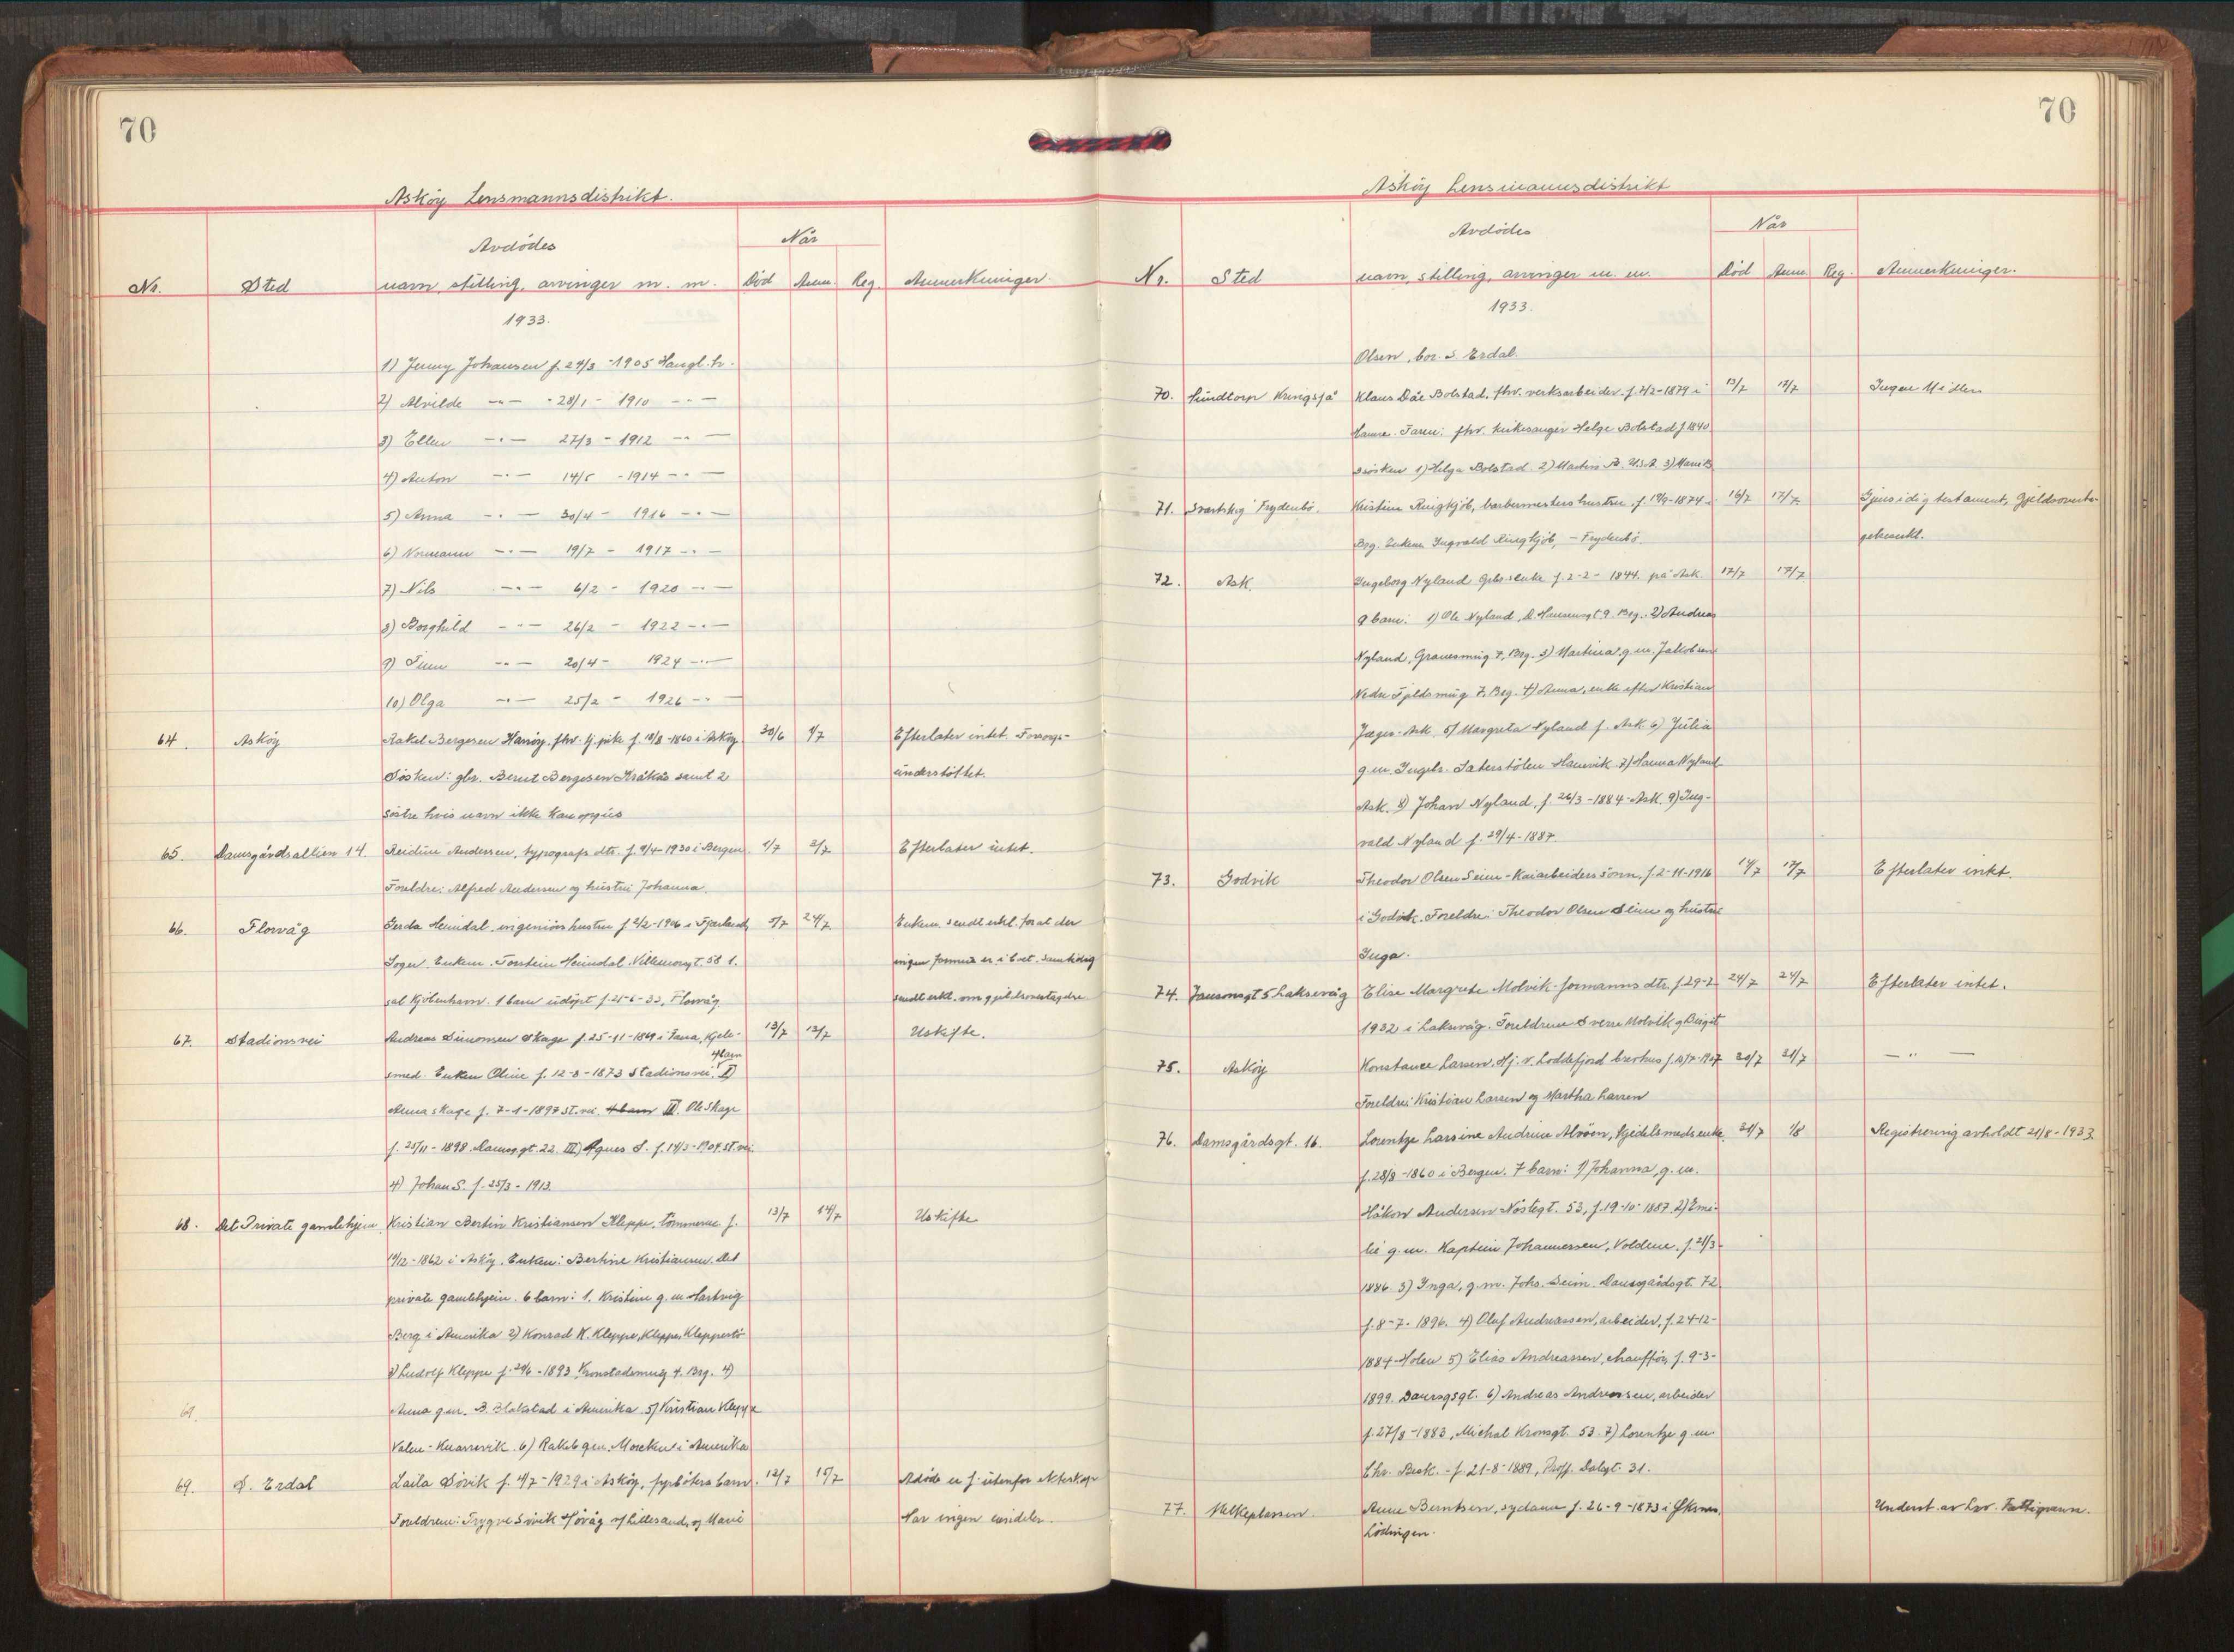 70
Askøy Lensmannsdistrikt.
Nr. Sted Avdødes navn, stilling, arvinger m. m. Når Død Anm. Reg. Anmerkninger.
1933.
1) Jenny Johansen f. 24/3 - 1905 Haugl. h.
2) Alvilde -"- - 28/1 - 1910 -"-
3) Ellen -"- 27/3 - 1912 -"-
4) Anton -"- 14/5 - 1914 -"-
5) Anna -"- 30/4 - 1916 -"-
6) Normann -"- 19/7 - 1917 -"-
7) Nils -"- 6/2 - 1920 -"-
8) Borghild -"- 26/2 - 1922 -"-
9) Finn -"- 20/4 - 1924 -"-
10) Olga -"- 25/2 - 1926 -"-
64. Askøy Rakel Bergesen Hanøy, fhv. tj. pike f. 18/8 - 1860 i Askøy 30/6 1/7 Efterlater intet. Forsorgs-
Søsken: gbr. Bernt Bergesen Kråkås samt 2 understøttet.
søstre hvis navn ikke kan oppgis
65. Damsgårdsalléen 14. Reidun Andersen, typografs dtr. f. 9/4 - 1930 i Bergen 1/7 3/7 Efterlater intet.
Foreldre: Alfred Andersen og hustru Johanna.
66. Florvåg Gerda Heimdal, ingeniørs hustru f. 2/2 - 1906 i Fjærland 5/7 24/7 Enkem. sendt erkl. for at der
Sogn. Enkem. Torstein Heimdal Villemorsgt. 58 1. ingen formue er i boet. Samtidig
sal Kjøbenhavn. 1 barn udøpt f. 21-6-33, Florvåg sendt erkl. om gjeldsovertagelse
67. Stadionsvei Andreas Simonsen Skage f. 25-11-1869 i Fana, kjele- 13/7 13/7 Uskifte.
smed. Enken Oline f. 12-8-1873 Stadionsvei. 4 barn I)
Anna Skage f. 7-1-1897 St. vei. 4 barn II. Ole Skage
f. 25/11 - 1898 Damsg.gt. 22. III) Agnes S. f. 14/3 - 1904 St. vei.
4) Johan S. f. 25/3 - 1913.
68. Det Private gamlehjem Kristian Bertin Kristiansen Kleppe, tømmerm. f. 13/7 14/7 Uskifte
19/12 - 1862 i Askøy. Enken: Bertine Kristiansen Det
private gamlehjem. 6 barn: 1. Kristine g. m. Hartvig
Berg i Amerika 2) Konrad K. Kleppe, Kleppe, Kleppestø
3) Ludolf Kleppe f. 29/6 - 1893 Kronstadsmug 4. Brg. 4)
69. Anna g. m. B. Blakstad i Amerika. 5) Kristian Kleppe
Valen - Knarrevik. 6) Rakel g. m. i Amerika
69. S. Erdal Laila Søvik f. 4/7 - 1929 i Askøy, fyrbøters barn. 12/7 15/7 Avdøde er f. utenfor ekteskap
Foreldrene: Trygve Søvik Høvåg v/ Lillesand, og Marie Har ingen eiendeler.
70
Askøy Lensmannsdistrikt
Nr. Sted Avdødes navn, stilling, arvinger m. m. Når Død Anm Reg. Anmerkninger.
1933.
Olsen, bor. S. Erdal.
70. Kringsjå Klaus Dåe Bolstad, fhv. verksarbeider. f. 7/2 - 1879 i 13/7 17/7 Ingen Midler
Hamre. Faren: fhv. kirkesanger Helge Bolstad f. 1840
søsken 1) Helga Bolstad 2) Martin B. U.S.A. 3) Marie B.
71. Frydenbø. Kristine Ringkjøb, barbermesters hustru, f. 19/9 - 1874 i 16/7 17/7 Gjensidig testament, Gjeldsoverta-
Brg. Enkem Ingvald Ringkjøb, - Frydenbø.
72. Ask. Ingeborg Nyland Gbr.s enke f. 2-2-1844. på Ask. 17/7 17/7
9 barn: 1) Ole Nyland, gt 9. Brg. 2) Andreas
Nyland, 7, Brg. 3) Martina g. m. Jakobsen
Nedre Fjeldsmug 7. Brg. 4) Anna, enke efter Kristian
Jæger - Ask. 5) Margreta Nyland f. Ask. 6) Julia
g. m. Ingebr. Sæterstølen Hanevik. 7) Hanna Nyland
Ask. 8) Johan Nyland, f. 26/3 - 1884 - Ask. 9) Ing-
vald Nyland f. 29/4 - 1887.
73. Godvik Theodor Olsen Seim - Kaiarbeiders sønn, f. 2-11-1916 14/7 17/7 Efterlater intet.
i Godvik. Foreldre: Theodor Olsen Seim og hustru
Inga.
74. Jansonsgt 5 Laksevåg Elise Margrete Molvik - formanns dtr. f. 29-2 24/7 24/7 Efterlater intet.
1932 i Laksevåg. Foreldrene Sverre Molvik og Birgit
75. Askøy Konstance Larsen. Hj. v. Loddefjord f. 1907 20/7 21/7 -"-
Foreldre: Kristian Larsen og Martha Larsen
76. Damsgårdsgt. 16. Lorentze Larsine Andrine Alvøen, kjedelsmeds enke. 31/7 1/8 Registrering avholdt 21/8 - 1933
f. 28/8 - 1860 i Bergen. 7 barn: 1) Johanna, g. m.
Håkon Andersen Nøstegt. 53, f. 19-10-1887. 2) Emi-
lie g. m. Kaptein Johannessen, Voldene, f. 21/3 -
1886. 3) Inga, g. m. Johs. Seim. Damsgårdsgt. 72.
f. 8-7-1896. 4) Olaf Andreassen, arbeider, f. 24-12-
1884 - Holen 5) Elias Andreassen, chauffør, f. 9-3-
1899. Damsgsgt. 6) Andreas Andreassen, arbeider
f. 27/8 - 1883, Michal Kronsgt. 53. 7) Lorentze g. m.
Chr. Beck. - f. 21-8-1889, Proff. Dalsgt. 31.
77. Melkeplassen. Anne Berntsen, sydame f. 26-9-1873 i Underst. av Lsv. Fattigvesen.
Lødingen.